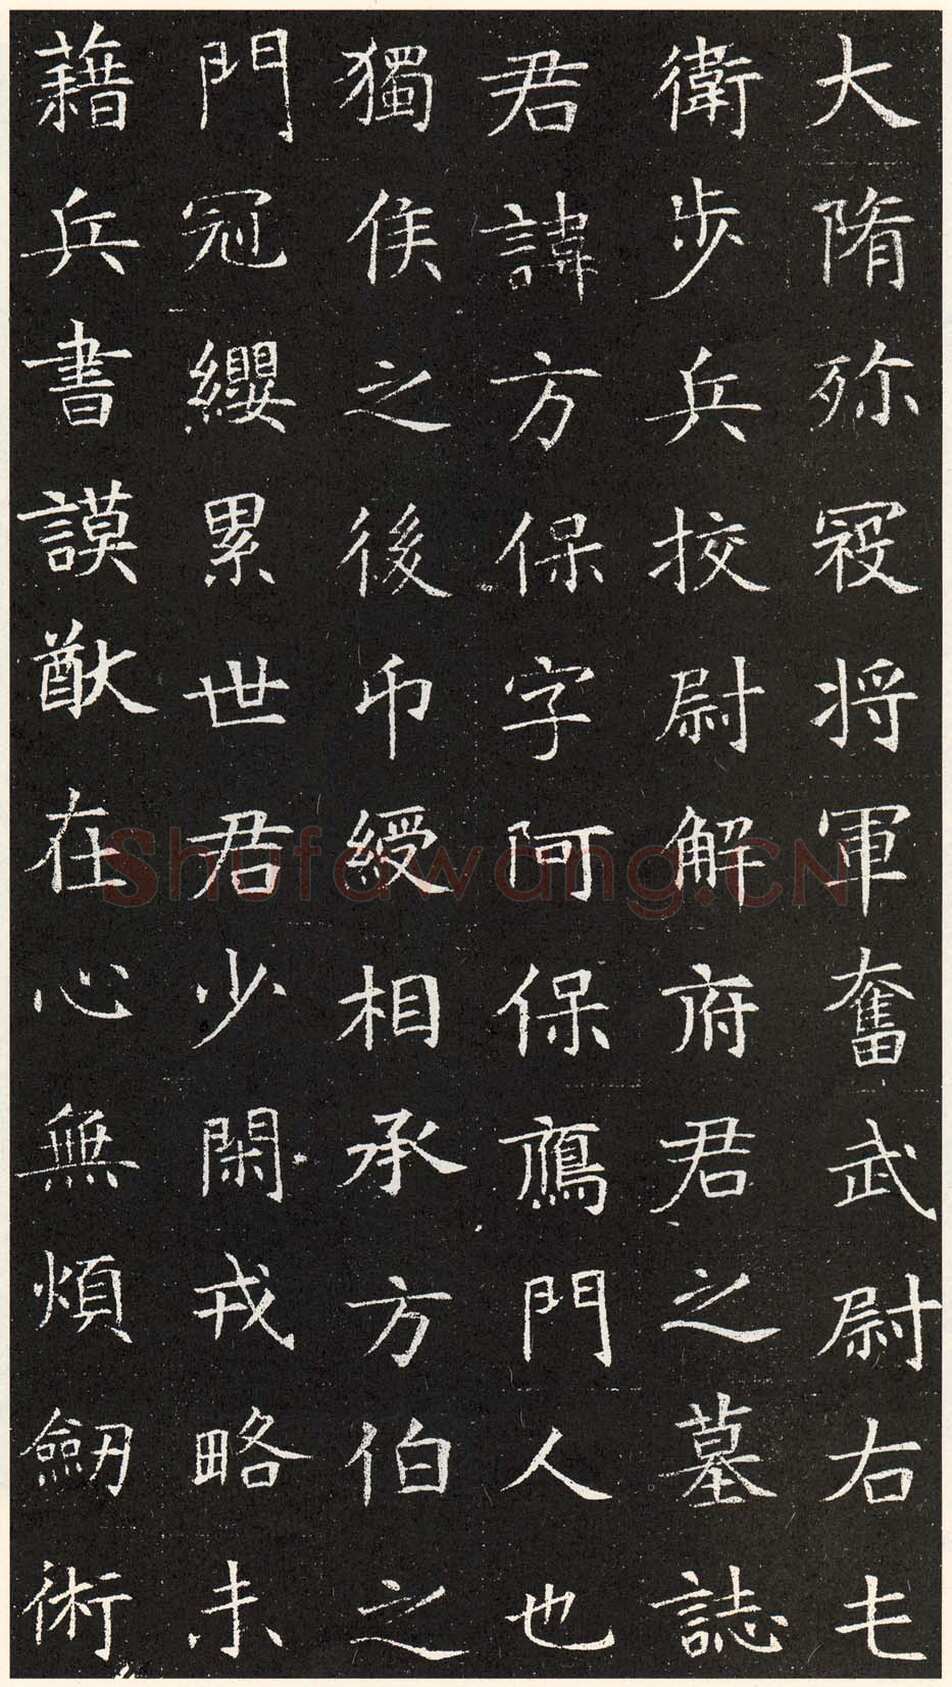 大隋殄寇将軍奮武尉右
衛步兵挍尉解府君之墓誌
君諱方保字阿保鴈門人也
獨侯之後印綬相承方伯之
門冠纓累世君少閑戎略未
藉兵書謨猷在心無煩劒術
Shufawang.CN